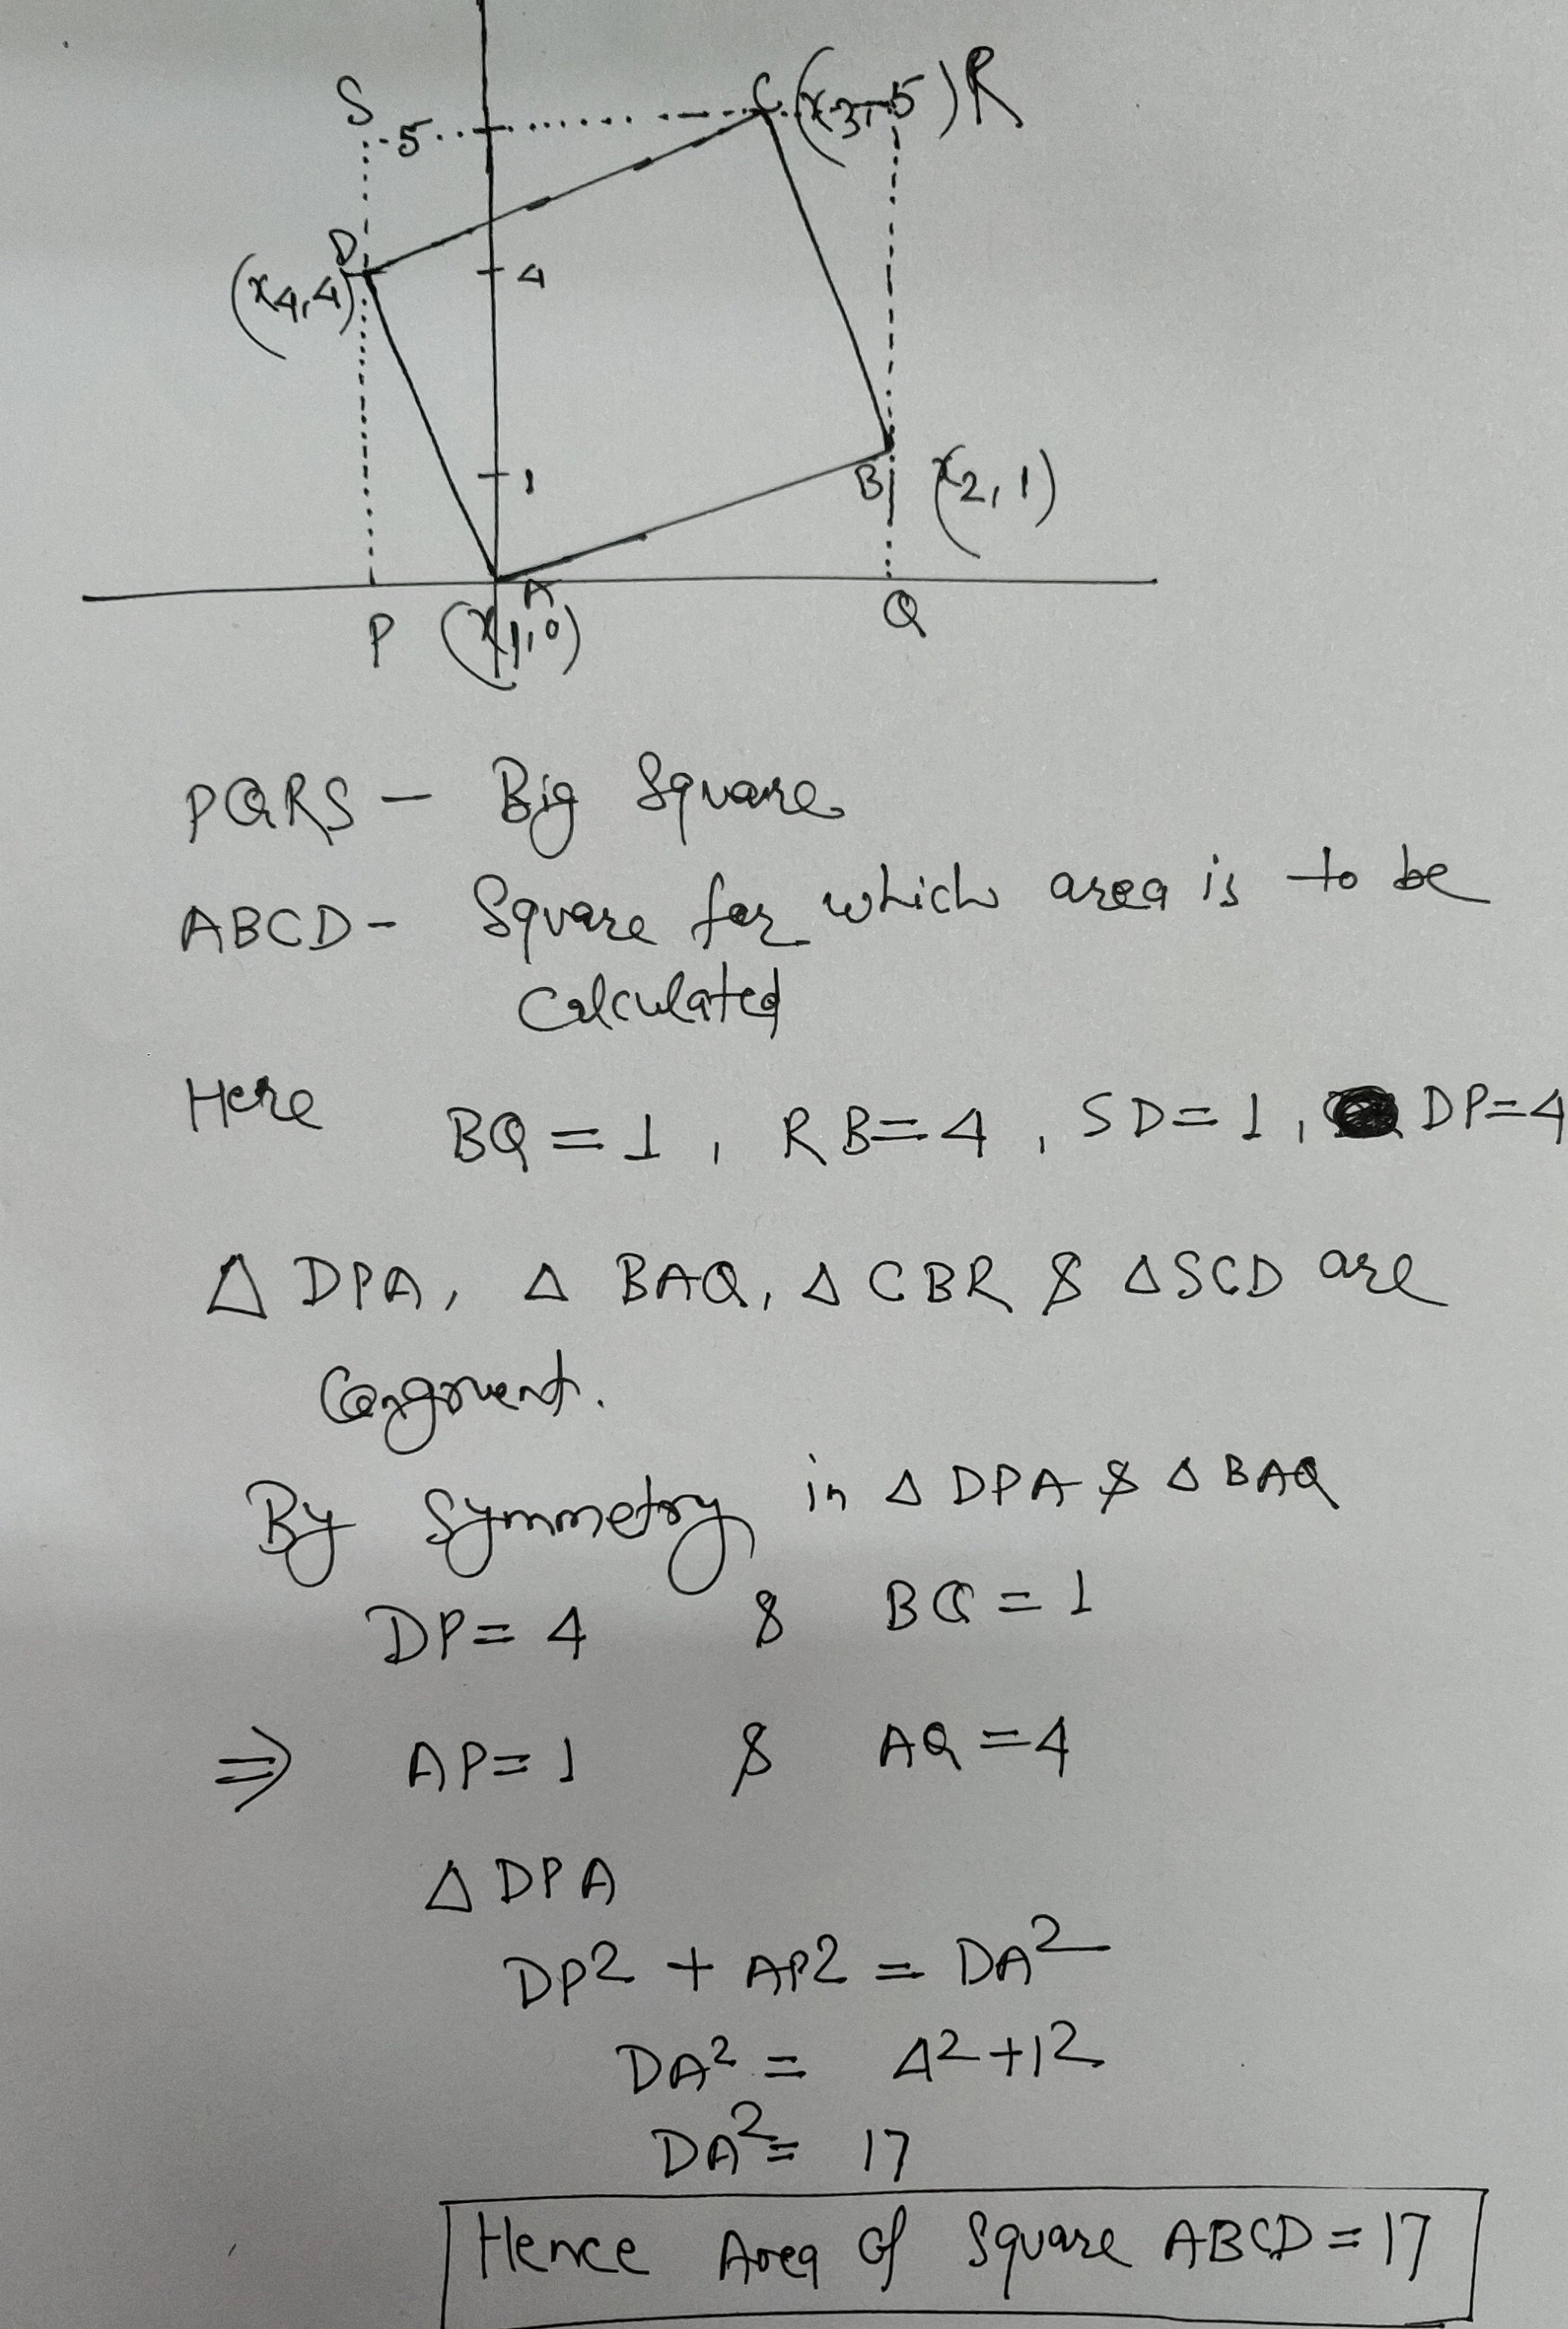 S
5
C (x3, 5) R
D
(x4, 4)
4
1
B (x2, 1)
A
P (x1, 0)
Q
PQRS - Big Square
ABCD - Square for which area is to be
Calculated
Here BQ = 1, RB = 4, SD = 1, DP = 4
Δ DPA, Δ BAQ, Δ CBR & Δ SCD are
Congruent.
By Symmetry in Δ DPA & Δ BAQ
DP = 4 & BQ = 1
⇒ AP = 1 & AQ = 4
Δ DPA
DP² + AP² = DA²
DA² = 4² + 1²
DA² = 17
Hence Area of Square ABCD = 17